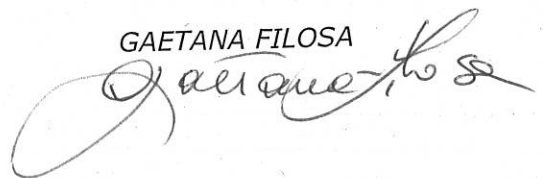 GAETANA FILOSA
Gaetana Filosa